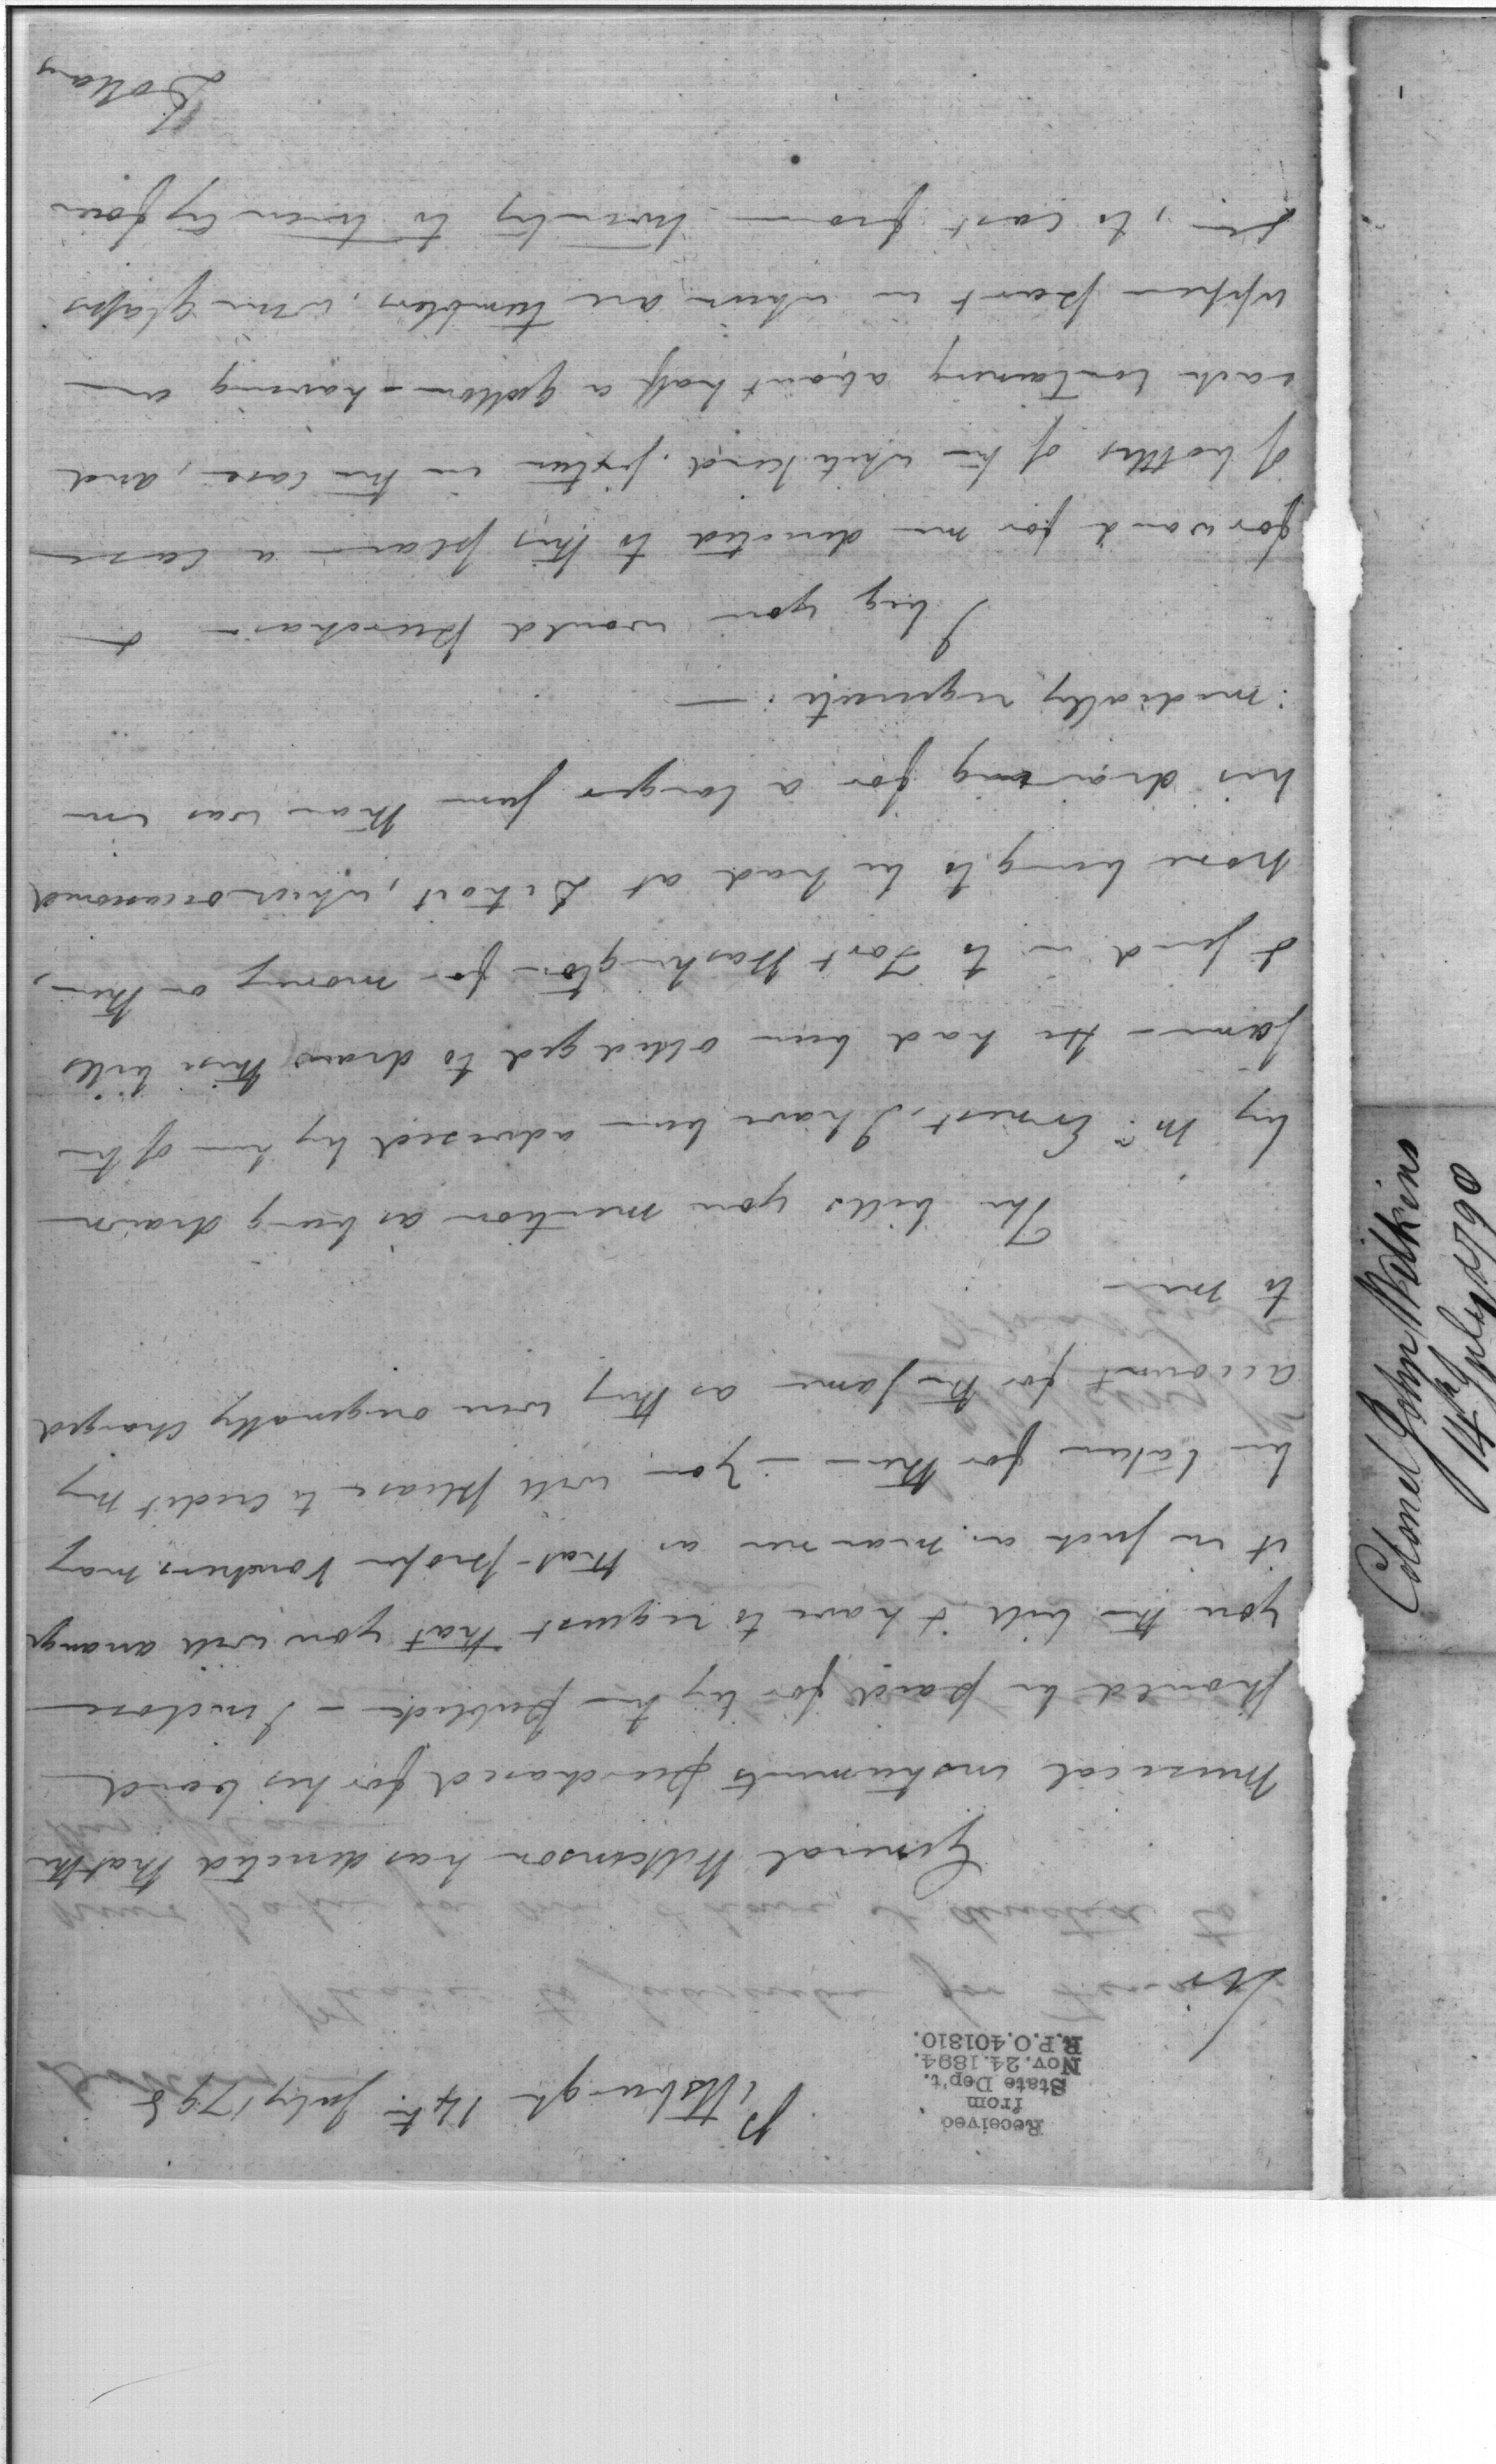 Received
from
State Dep't.
Nov. 24. 1894.
R.P.O. 401810.
Pittsburgh 14th July 1798
Sir
General Wilkinson has directed that the
musical instruments purchased for his band
should be paid for by the Publick — I inclose
you the bill & have to request that you will arrange
it in such a manner as that proper Vouchers may
be taken for them — You will please to credit my
account for the same as they were origenally charged
to me —
The bills you mention as being drawn
by Mr. Ernest, I have been advised by him of the
same — He had been obliedged to draw these bills
& send in to Fort Washington for money on them,
none being to be had at Detroit, which occasioned
his drawing for a larger sum than was im
:mediatly requisite: —
I beg you would purchase &
forward for me directed to this place a case
of bottles of the white kind, sixteen in the case, and
each containing about half a gallon — having an
upper part in which are tumblers, wine glasses
&c, to cost from twenty to twenty four
Dollars
Colonel John Wilkins
14th July 1798